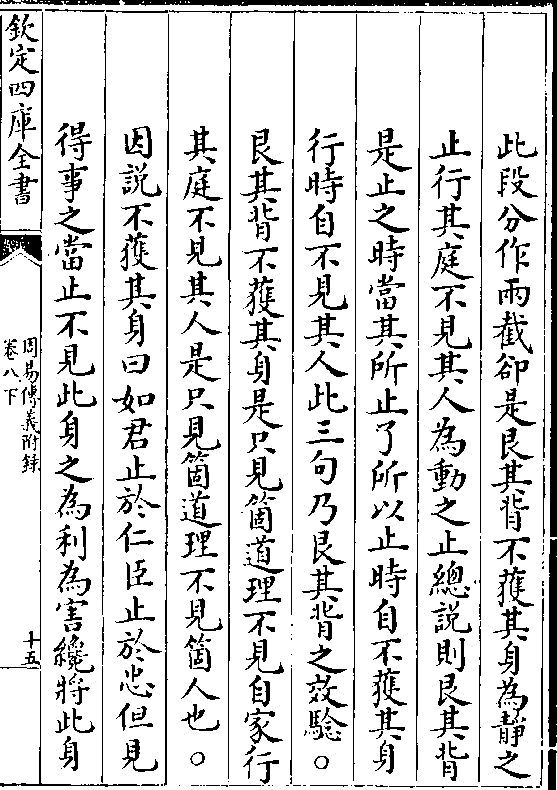 此段分作兩截卻是艮其背不獲其身為靜之
止行其庭不見其人為動之止總說則艮其背
是止之時當其所止了所以止時自不獲其身
行時自不見其人此三句乃艮其背之效驗○
艮其背不獲其身是只見箇道理不見自家行
其庭不見其人是只見箇道理不見箇人也○
因說不獲其身曰如君止於仁臣止於忠但見
得事之當止不見此身之為利為害纔將此身
欽定四庫全書
周易傳義附録
卷八下
十五